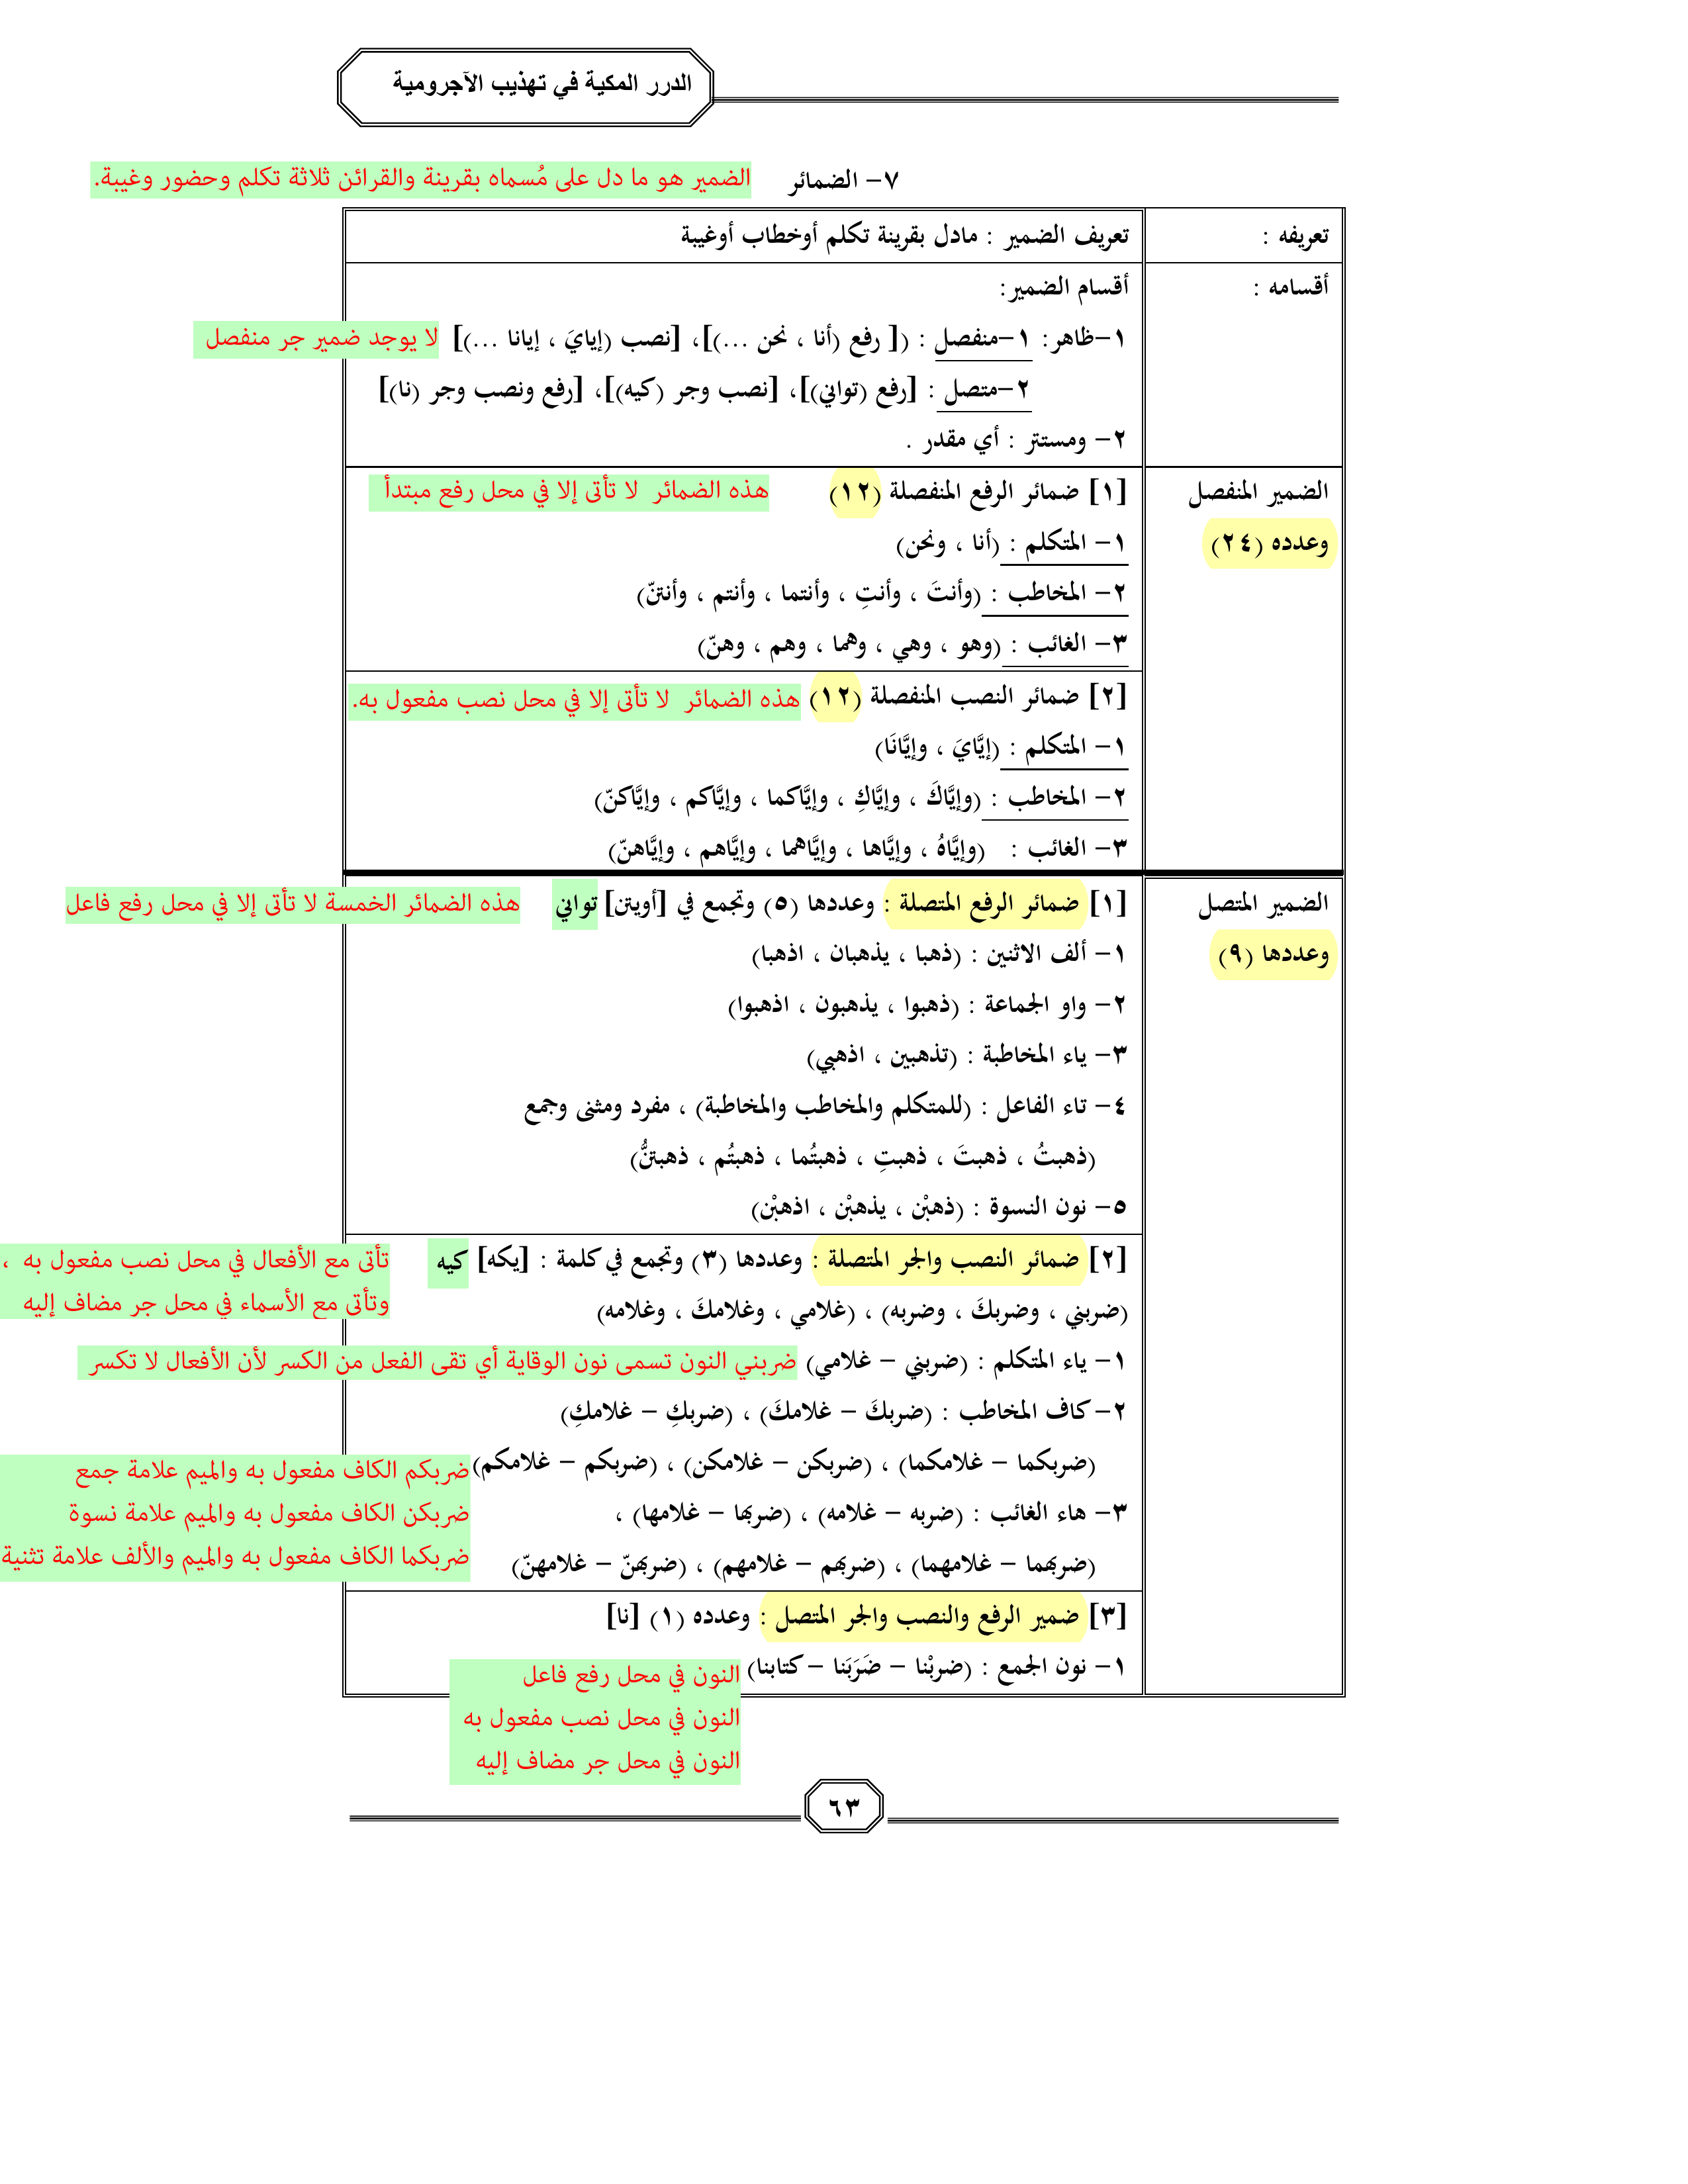 الدرر المكية في تهذيب الآجرومية
٧- الضمائر الضمير هو ما دل على مُسماه بقرينة والقرائن ثلاثة تكلم وحضور وغيبة.
تعريفه : تعريف الضمير : مادل بقرينة تكلم أوخطاب أوغيبة
أقسامه : أقسام الضمير:
١-ظاهر: ١-منفصل : ([ رفع (أنا ، نحن ...)]، [نصب (إيايَ ، إيانا ...)] لا يوجد ضمير جر منفصل
٢-متصل : [رفع (تواني)]، [نصب وجر (كيه)]، [رفع ونصب وجر (نا)]
٢- ومستتر : أي مقدر .
الضمير المنفصل [١] ضمائر الرفع المنفصلة (١٢) هذه الضمائر لا تأتى إلا في محل رفع مبتدأ
وعدده (٢٤) ١- المتكلم : (أنا ، ونحن)
٢- المخاطب : (وأنتَ ، وأنتِ ، وأنتما ، وأنتم ، وأنتنّ)
٣- الغائب : (وهو ، وهي ، وهما ، وهم ، وهنّ)
[٢] ضمائر النصب المنفصلة (١٢) هذه الضمائر لا تأتى إلا في محل نصب مفعول به.
١- المتكلم : (إيَّايَ ، وإيَّانَا)
٢- المخاطب : (وإيَّاكَ ، وإيَّاكِ ، وإيَّاكما ، وإيَّاكم ، وإيَّاكنّ)
٣- الغائب : (وإيَّاهُ ، وإيَّاها ، وإيَّاهما ، وإيَّاهم ، وإيَّاهنّ)
الضمير المتصل [١] ضمائر الرفع المتصلة : وعددها (٥) وتجمع في [أويتن] تواني هذه الضمائر الخمسة لا تأتى إلا في محل رفع فاعل
وعددها (٩) ١- ألف الاثنين : (ذهبا ، يذهبان ، اذهبا)
٢- واو الجماعة : (ذهبوا ، يذهبون ، اذهبوا)
٣- ياء المخاطبة : (تذهبين ، اذهبي)
٤- تاء الفاعل : (للمتكلم والمخاطب والمخاطبة) ، مفرد ومثنى وجمع
(ذهبتُ ، ذهبتَ ، ذهبتِ ، ذهبتُما ، ذهبتُم ، ذهبتنُّ)
٥- نون النسوة : (ذهبْن ، يذهبْن ، اذهبْن)
[٢] ضمائر النصب والجر المتصلة : وعددها (٣) وتجمع في كلمة : [يكه] كيه تأتى مع الأفعال في محل نصب مفعول به ،
وتأتى مع الأسماء في محل جر مضاف إليه
(ضربني ، وضربكَ ، وضربه) ، (غلامي ، وغلامكَ ، وغلامه)
١- ياء المتكلم : (ضربني - غلامي) ضربني النون تسمى نون الوقاية أي تقى الفعل من الكسر لأن الأفعال لا تكسر
٢- كاف المخاطب : (ضربكَ - غلامكَ) ، (ضربكِ - غلامكِ)
(ضربكما - غلامكما) ، (ضربكن - غلامكن) ، (ضربكم - غلامكم) ضربكم الكاف مفعول به والميم علامة جمع
٣- هاء الغائب : (ضربه - غلامه) ، (ضربها - غلامها) ، ضربكن الكاف مفعول به والميم علامة نسوة
(ضربهما - غلامهما) ، (ضربهم - غلامهم) ، (ضربهنّ - غلامهنّ) ضربكما الكاف مفعول به والميم والألف علامة تثنية
[٣] ضمير الرفع والنصب والجر المتصل : وعدده (١) [نا]
١- نون الجمع : (ضربْنا - ضَرَبَنا - كتابنا) النون في محل رفع فاعل
النون في محل نصب مفعول به
النون في محل جر مضاف إليه
٦٣